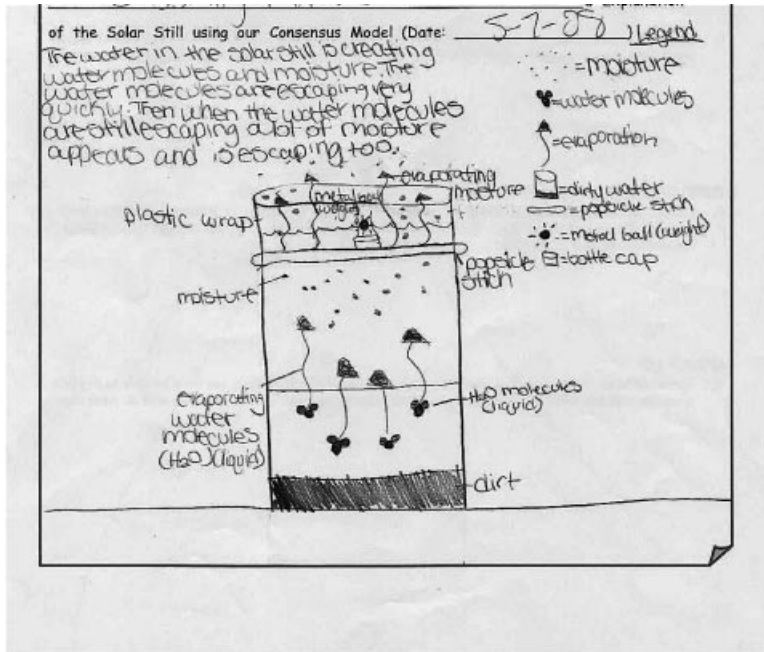 Explanation
of the Solar Still using our Consensus Model (Date: 5-7-08 ) Legend
The water in the solar still is creating
water molecules and moisture. The
water molecules are escaping very
quickly. Then when the water molecules
are still escaping a lot of moisture
appears and is escaping too.
= moisture
= water molecules
= evaporation
= dirty water
= popsicle stich
= metal ball (weight)
= bottle cap
evaporating
moisture
metal ball
plastic wrap
popsicle
stich
moisture
evaporating
water
molecules
(H2O) (liquid)
H2O molecules
(liquid)
dirt